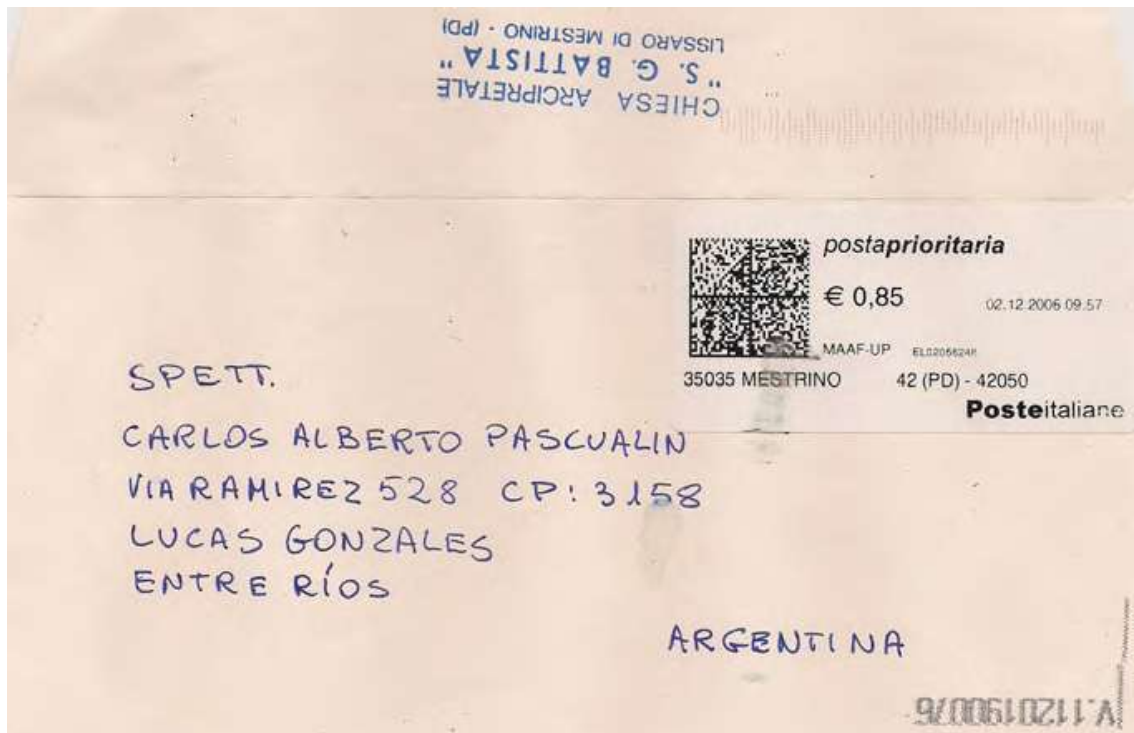 CHIESA ARCIPRETALE
"S. G. BATTISTA"
LISSARO DI MESTRINO - (PD)
postaprioritaria
€ 0,85
02.12.2006 09.57
MAAF-UP
35035 MESTRINO 42 (PD) - 42050
Posteitaliane
SPETT.
CARLOS ALBERTO PASCUALIN
VIA RAMIREZ 528 CP: 3158
LUCAS GONZALES
ENTRE RÍOS
ARGENTINA